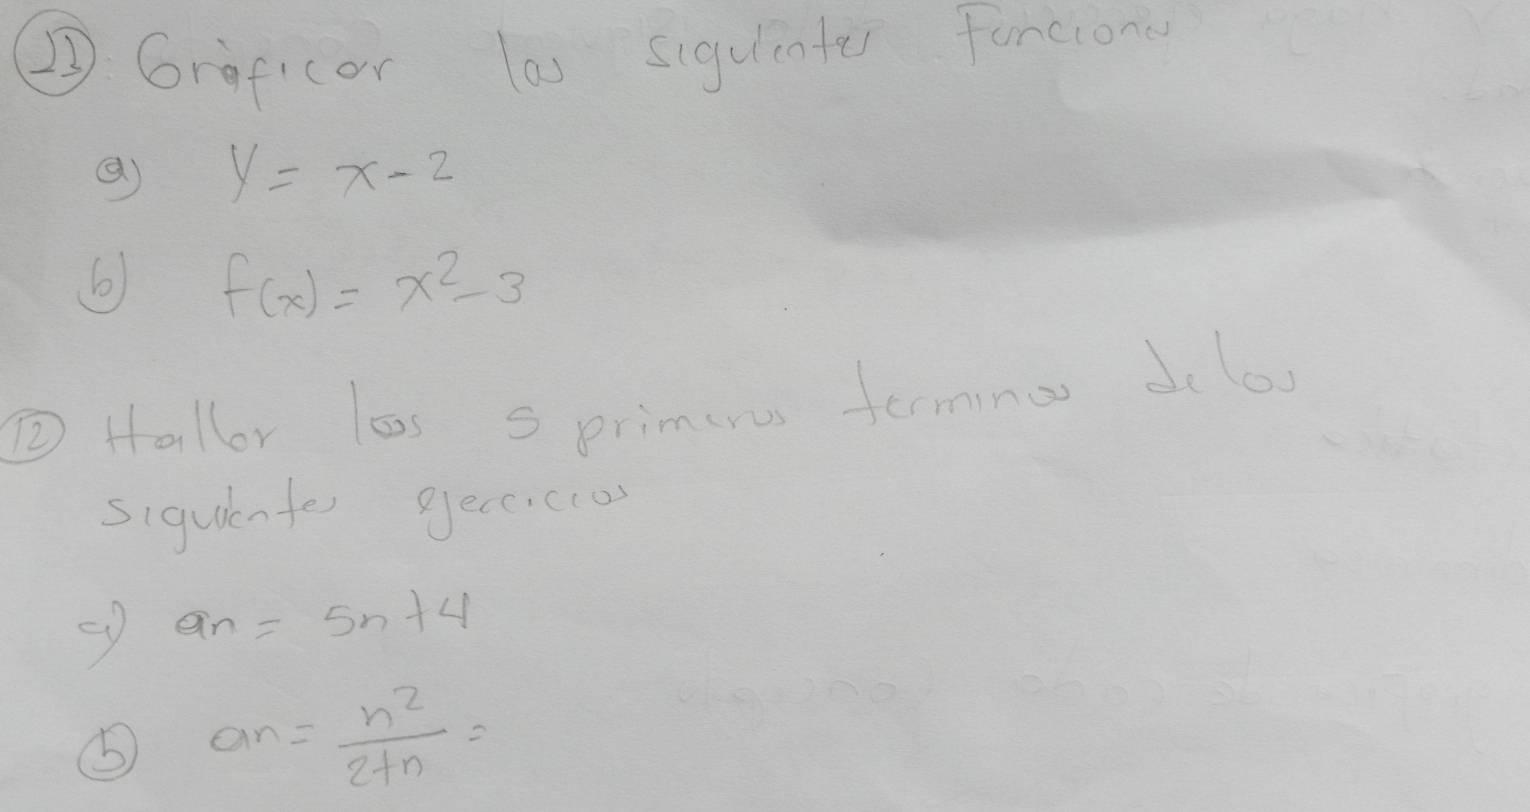 11 Gráficar las siguientes Funciones
a) y = x - 2
b) f(x) = x² - 3
12 Hallar los 5 primeros terminos de los
siguientes ejercicios
a) an = 5n + 4
b) an = n²/2+n =